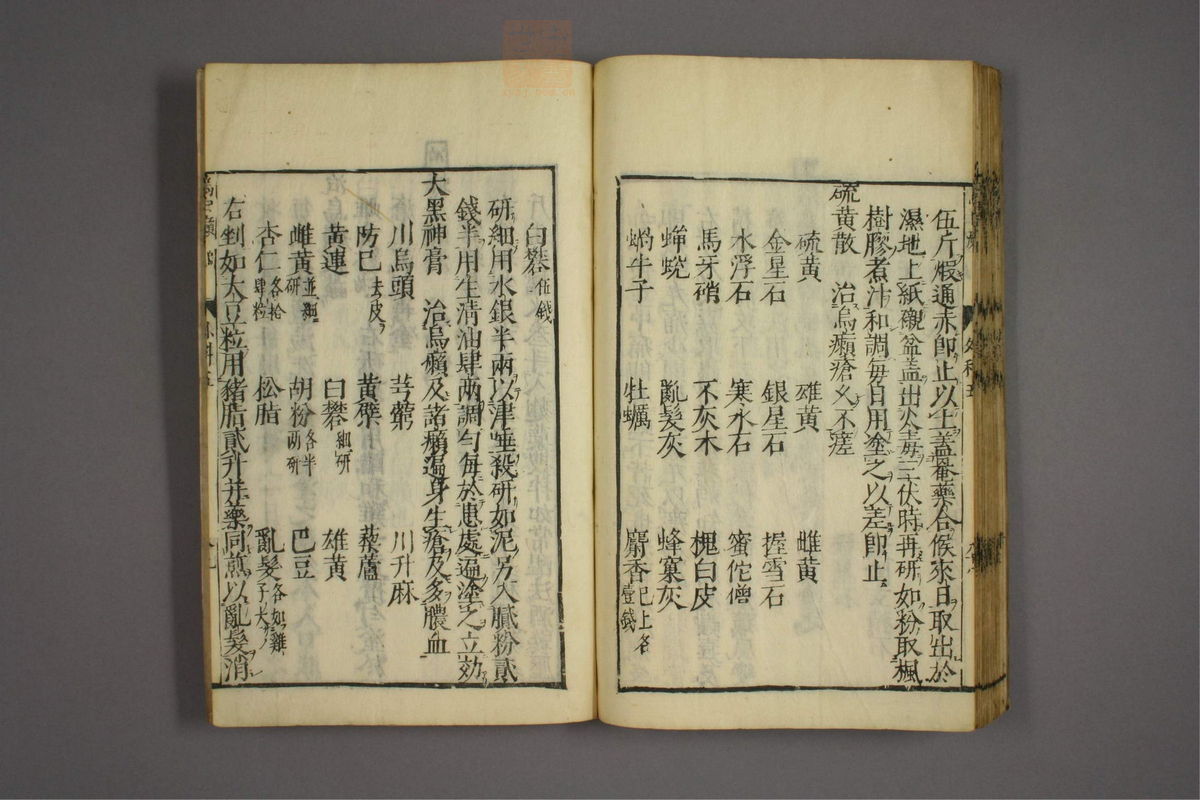 伍斤煆通赤即止以土蓋罨藥合候來日取出於
濕地上紙襯盆蓋出火毒三伏時再研如粉取楓
樹膠煮汁和調每日用塗之以差即止
硫黃散 治烏癩瘡久不瘥
硫黃 雄黃 雌黃
金星石 銀星石 握雪石
水浮石 寒水石 蜜佗僧
馬牙硝 不灰木 槐白皮
蟬蛻 亂髮灰 蜂窠灰
蝸牛子 牡蠣 麝香已上各壹錢
白礬伍錢
研細用水銀半兩以津唾殺研如泥另入膩粉貳
錢半用生清油肆兩調勻每於患處逼塗之立効
大黑神膏 治烏癩及諸癩遍身生瘡及多膿血
川烏頭 芎藭 川升麻
防巳去皮 黃蘗 藜蘆
黃連 白礬細研 雄黃
雌黃並細研 胡粉各半兩研 巴豆
杏仁各拾肆粒 松脂 亂髮各如雞子大
右剉如大豆粒用豬脂貳升并藥同煎以亂髮消